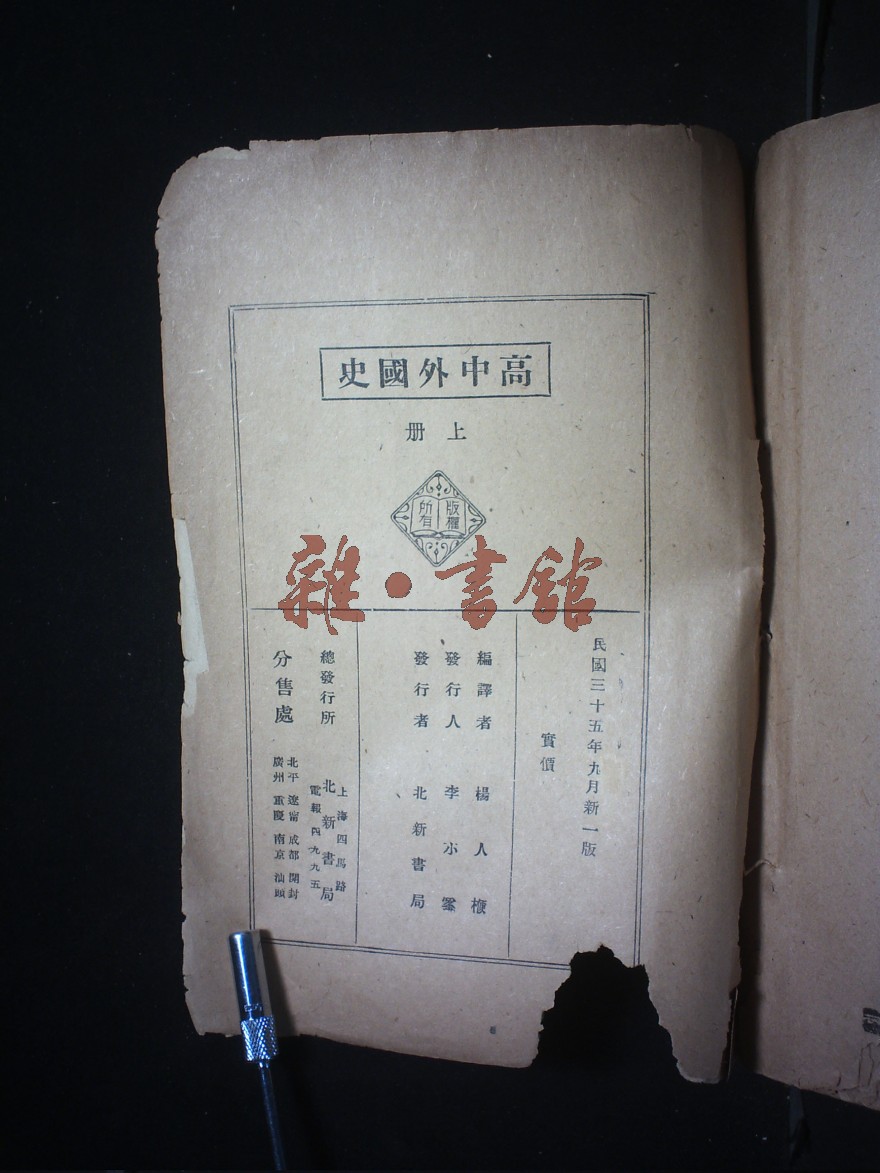 高中外國史
上册
版權
所有
雜·書館
民國三十五年九月新一版
實價
編譯者 楊人楩
發行人 李小峯
發行者 北新書局
總發行所
上海四馬路
北新書局
電報四九九五
分售處
北平 遼甯 成都 開封
廣州 重慶 南京 汕頭